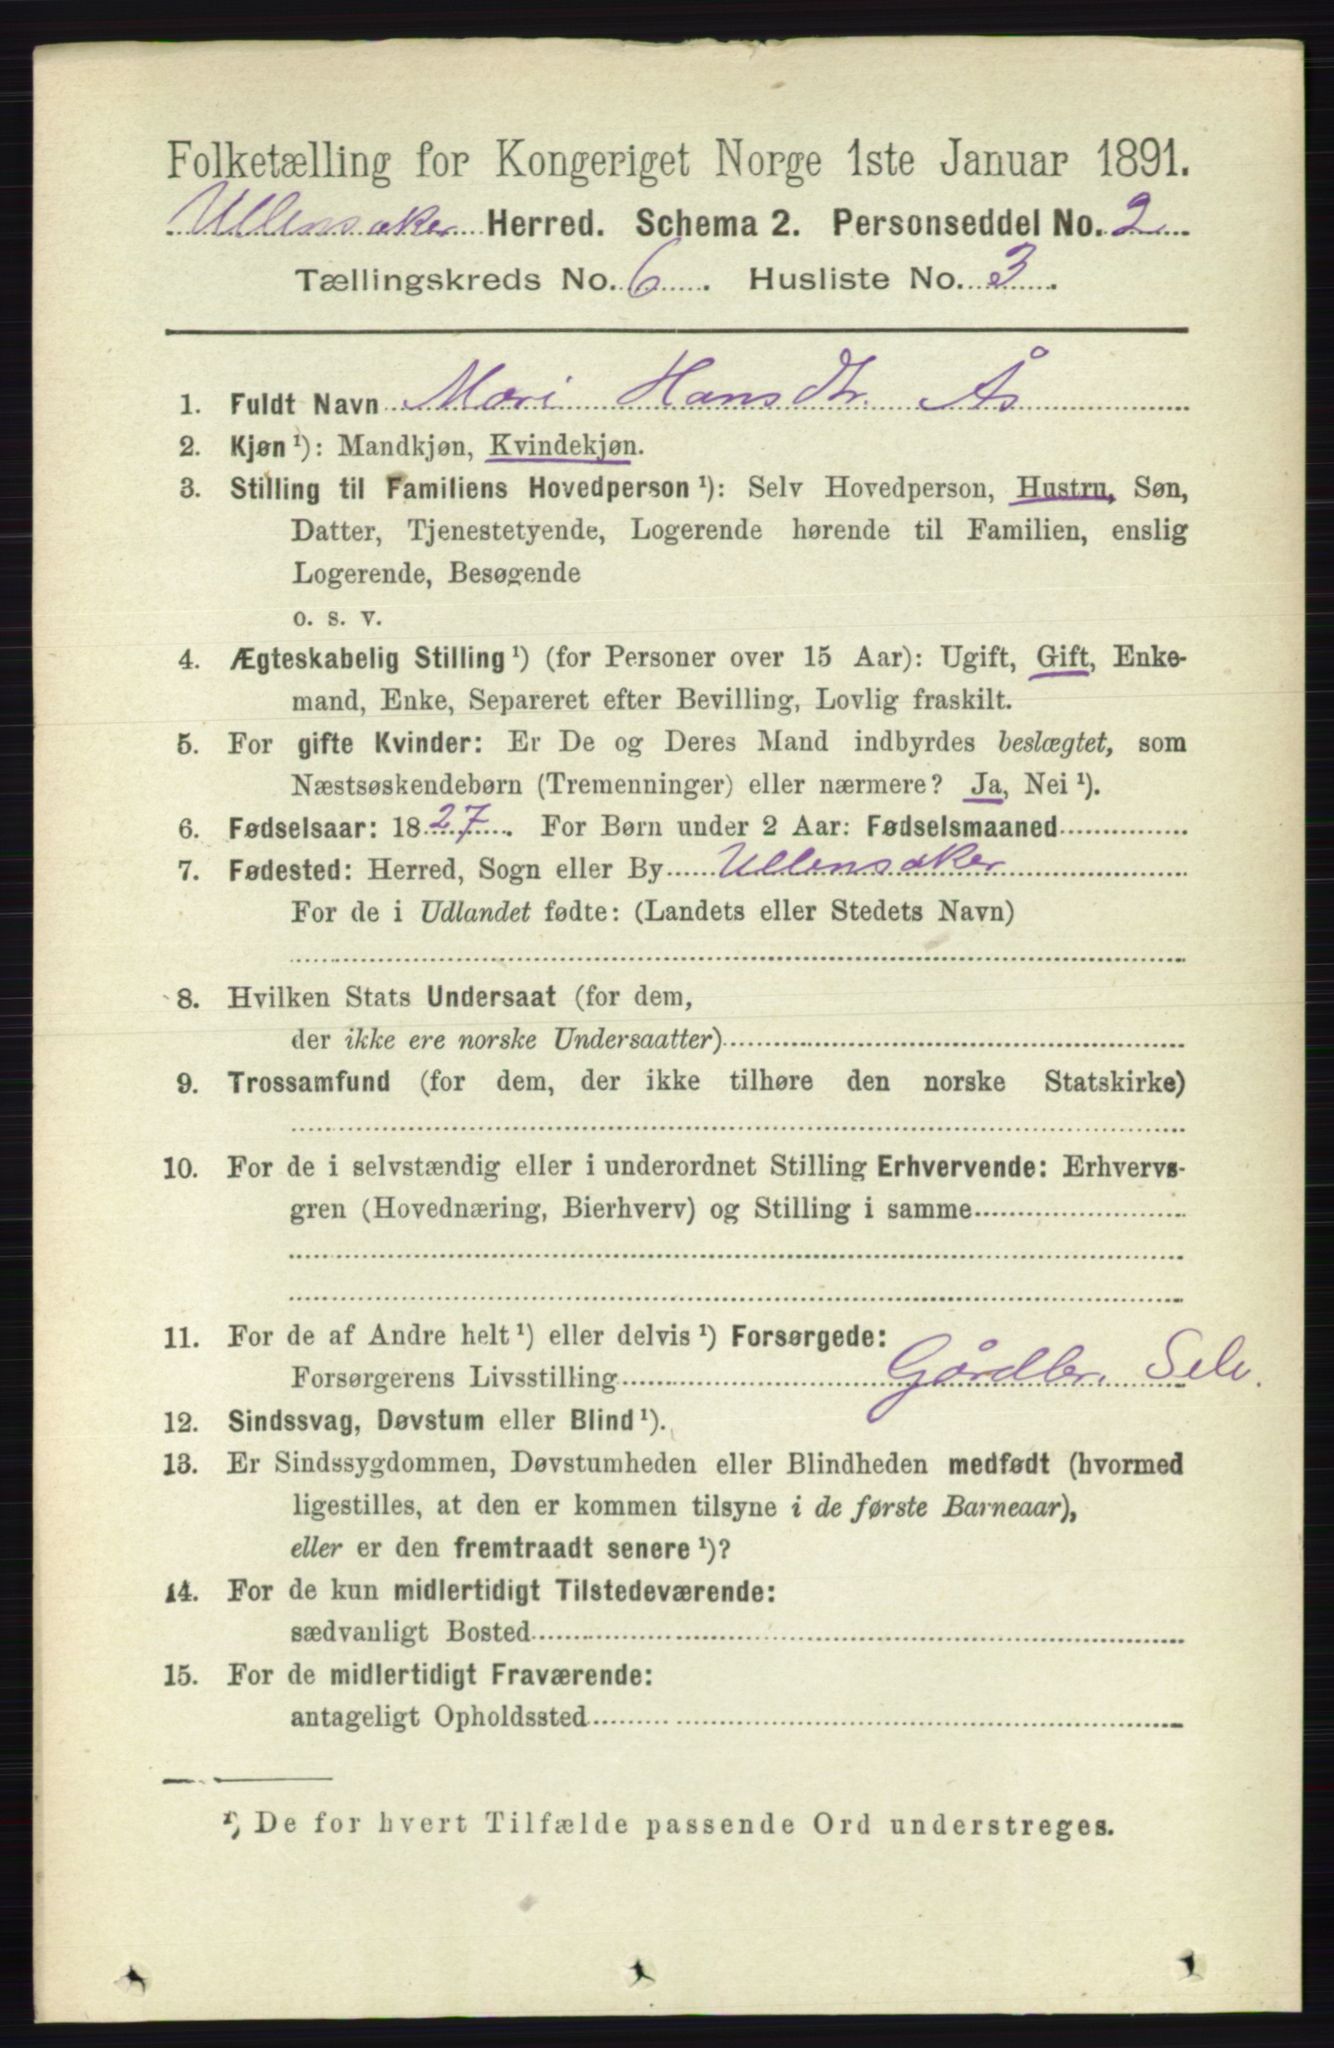 Folketælling for Kongeriget Norge 1ste Januar 1891.
Ullensaker Herred. Schema 2. Personseddel No. 2
Tællingskreds No. 6. Husliste No. 3.
1. Fuldt Navn Mari Hansdtr. Ås
2. Kjøn¹): Mandkjøn, Kvindekjøn.
3. Stilling til Familiens Hovedperson¹): Selv Hovedperson, Hustru, Søn,
Datter, Tjenestetyende, Logerende hørende til Familien, enslig
Logerende, Besøgende
o. s. v.
4. Ægteskabelig Stilling¹) (for Personer over 15 Aar): Ugift, Gift, Enke-
mand, Enke, Separeret efter Bevilling, Lovlig fraskilt.
5. For gifte Kvinder: Er De og Deres Mand indbyrdes beslægtet, som
Næstsøskendebørn (Tremenninger) eller nærmere? Ja, Nei¹).
6. Fødselsaar: 1827. For Børn under 2 Aar: Fødselsmaaned
7. Fødested: Herred, Sogn eller By Ullensaker
For de i Udlandet fødte: (Landets eller Stedets Navn)
8. Hvilken Stats Undersaat (for dem,
der ikke ere norske Undersaatter)
9. Trossamfund (for dem, der ikke tilhøre den norske Statskirke)
10. For de i selvstændig eller i underordnet Stilling Erhvervende: Erhvervs-
gren (Hovednæring, Bierhverv) og Stilling i samme
11. For de af Andre helt¹) eller delvis¹) Forsørgede:
Forsørgerens Livsstilling Gårdbr. Sele.
12. Sindssvag, Døvstum eller Blind¹).
13. Er Sindssygdommen, Døvstumheden eller Blindheden medfødt (hvormed
ligestilles, at den er kommen tilsyne i de første Barneaar),
eller er den fremtraadt senere¹)?
14. For de kun midlertidigt Tilstedeværende:
sædvanligt Bosted
15. For de midlertidigt Fraværende:
antageligt Opholdssted
¹) De for hvert Tilfælde passende Ord understreges.